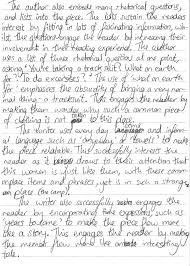 The author also embeds many rhetorical questions,
and lists into the piece. The lists sustain the readers
interest by fitting in lots of fascinating information, whi-
lst the questions engage the reader by increasing their
involvement in their reading experience. The author
uses a list of three rhetorical questions at one place,
asking "You're taking a track suit? What on earth
for?" "To do exercises." The use of 'what on earth
for' emphasises the absurdity of bringing a very nor-
mal thing - a tracksuit. That engages the reader by
making them wonder why such a common piece
of clothing is not to this place.
The writer uses every day language and informal
language such as "
piece relatable. This successfully interests the
reader as it draws to their attention that
this woman is just like them, with these com-
place items and phrases yet is in such a strange
place (the camp).
The writer also successfully engages the
reader by incorporating time expressions, such as
to make the piece flow more
like a story. This engages the reader by making
the memoir flow like an interesting
tale.